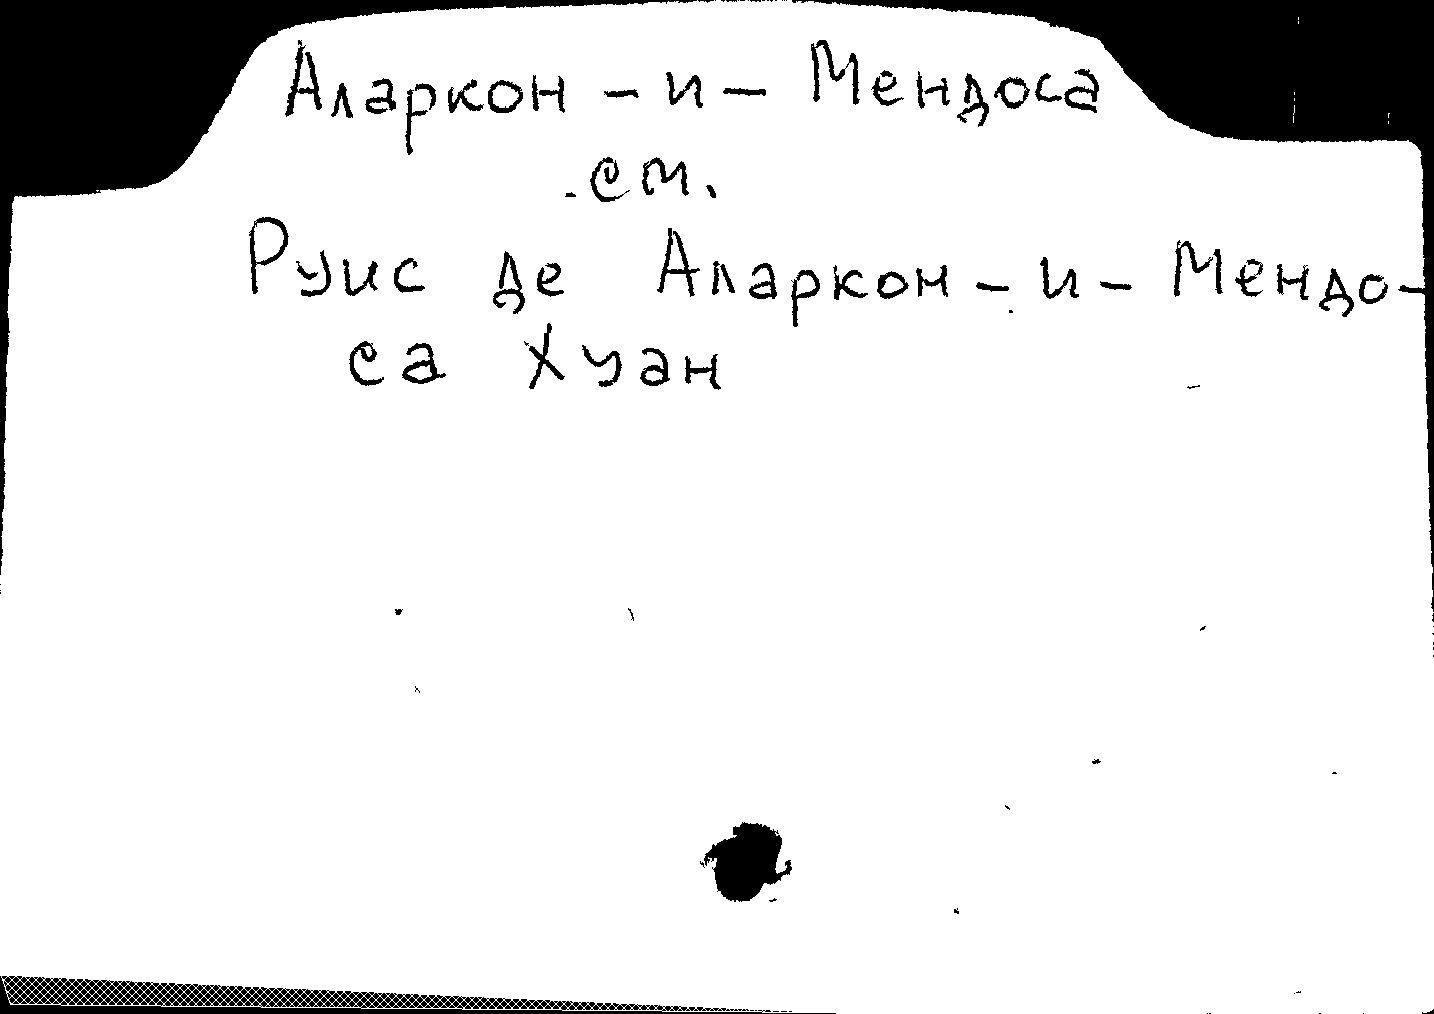 Аларкон - и - Мендоса
см.
Руис де Аларкон - и - Мендо-
са Хуан